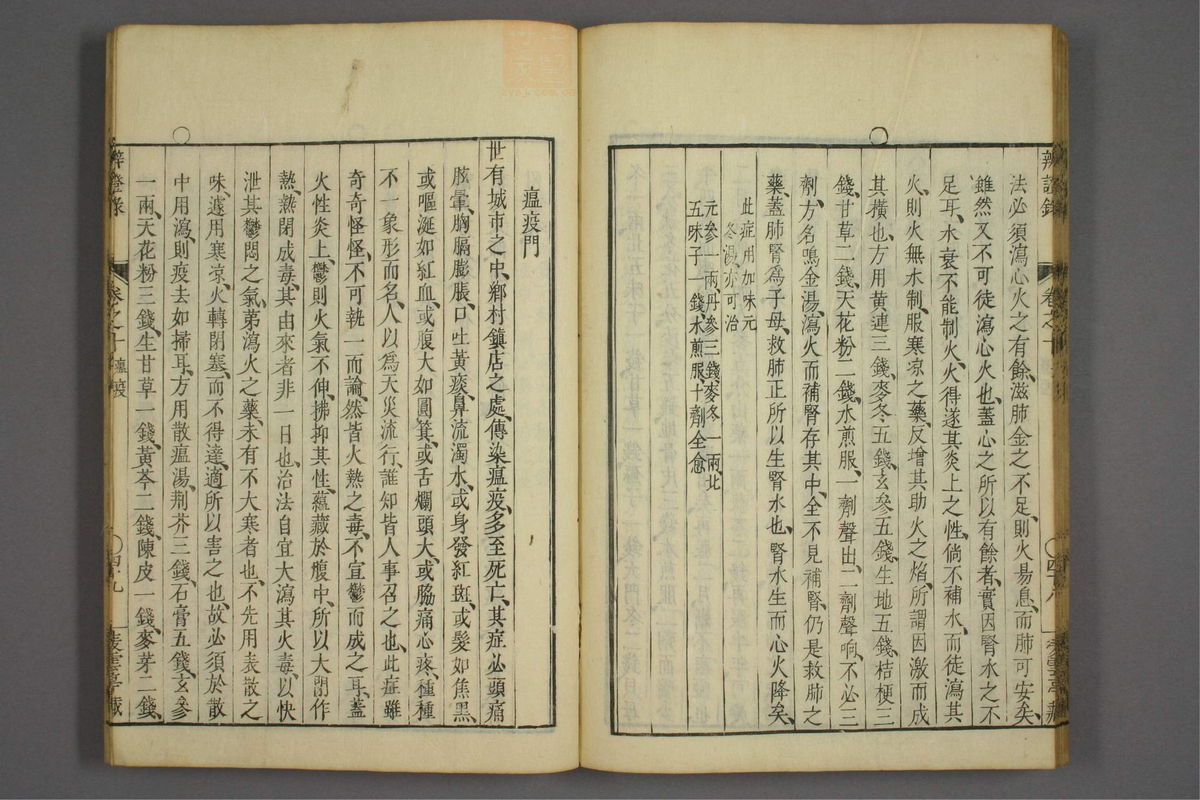 法必須瀉心火之有餘滋肺金之不足、則火易息、而肺可安矣、
雖然又不可徒瀉心火也、蓋心之所以有餘者、實因腎水之不
足耳、水衰不能制火、火得遂其炎上之性、倘不補水、而徒瀉其
火、則火無水制、服寒涼之藥、反增其助火之焰、所謂因激而成
其橫也、方用黃連三錢、麥冬五錢、玄參五錢、生地五錢、桔梗三
錢、甘草二錢、天花粉二錢、水煎服、一劑聲出、二劑聲响、不必三
劑、方名鳴金湯、瀉火而補腎存其中、全不見補腎、仍是救肺之
藥、蓋肺腎爲子母、救肺正所以生腎水也、腎水生而心火降矣、
此症用加味元
冬湯、亦可治
元參一兩、丹參三錢、麥冬一兩、北
五味子一錢、水煎服、十劑全愈
辨證錄
卷之十
瘟疫門
世有城市之中、鄉村鎮店之處、傳染瘟疫、多至死亡、其症必頭痛
眩暈、胸膈膨脹、口吐黃痰、鼻流濁水、或身發紅斑、或髮如焦黑、
或嘔涎如紅血、或腹大如圓箕、或舌爛頭大、或脇痛心疼、種種
不一、象形而名、人以爲天災流行、誰知皆人事召之也、此症雖
奇奇怪怪、不可執一而論、然皆火熱之毒、不宣鬱而成之耳、蓋
火性炎上、鬱則火氣不伸、拂抑其性、蘊藏於腹中、所以大閉作
熱、熱閉成毒、其由來者非一日也、治法自宜大瀉其火毒、以快
泄其鬱悶之氣、苐瀉火之藥、未有不大寒者也、不先用表散之
味、遽用寒涼、火轉閉塞、而不得達、適所以害之也、故必須於散
中用瀉、則疫去如掃耳、方用散瘟湯、荆芥三錢、石膏五錢、玄參
一兩、天花粉三錢、生甘草一錢、黃芩二錢、陳皮一錢、麥芽二錢、
辨證錄
卷之十
瘟疫
四十九